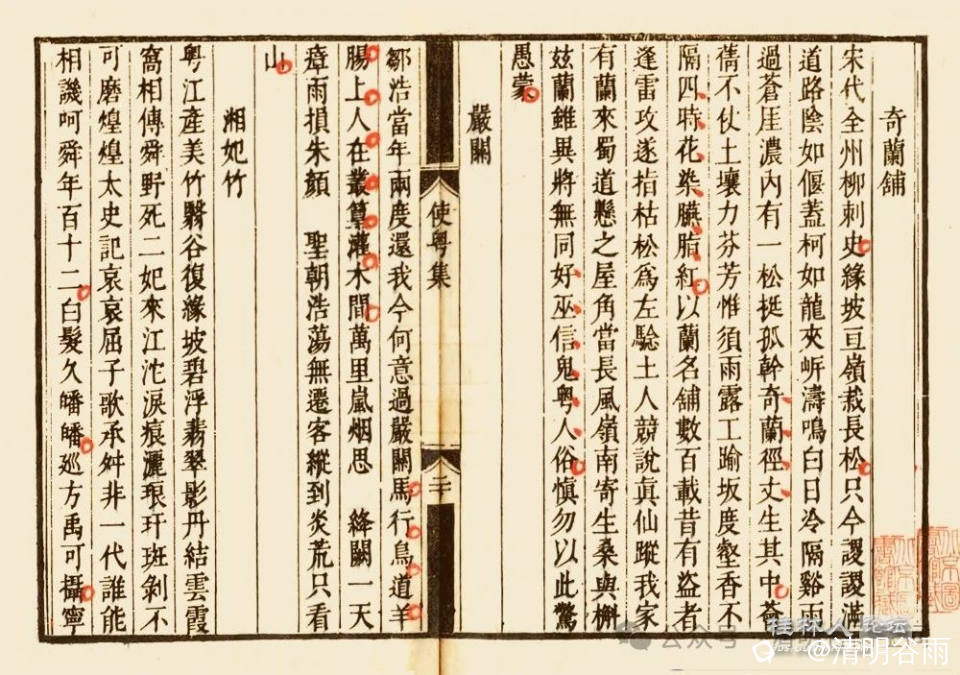 奇蘭舖
宋代全州柳刺史緣坡亘嶺栽長松只今謖謖滿
道路陰如偃蓋柯如龍夾㟁濤鳴白日冷隔谿雨
過蒼厓濃內有一松挺孤幹奇蘭徑丈生其中薈
蒨不仗土壤力芬芳惟須雨露工踰坂度壑香不
隔四時花染臙脂紅以蘭名舖數百載昔有盜者
逢雷攻遂指枯松爲左騐土人競說眞仙蹤我家
有蘭來蜀道懸之屋角當長風嶺南寄生桑與槲
玆蘭雖異將無同好巫信鬼粤人俗愼勿以此驚
愚蒙
嚴關
使粤集
二
鄒浩當年兩度還我今何意過嚴關馬行鳥道羊
腸上人在叢篁灌木間萬里嵐烟思 絳闕一天
瘴雨損朱顏 聖朝浩蕩無遷客縱到炎荒只看
山
湘妃竹
粤江產美竹翳谷復緣坡碧浮翡翠影丹結雲霞
窩相傳舜野死二妃來江沱淚痕灑琅玕班剝不
可磨煌煌太史記哀哀屈子歌承舛非一代誰能
相譏呵舜年百十二白髮久皤皤廵方禹可攝寧
桂林人论坛
公众号
@清明谷雨